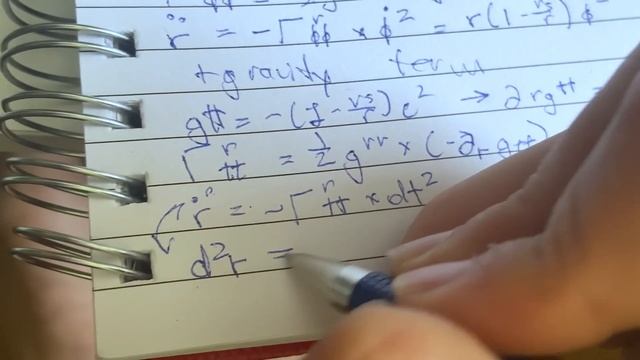 r̈ = -Γ^r_φφ × φ̇² = r(1 - rs/r) φ̇²
+ gravity term
gtt = -(1 - rs/r) c² → ∂r gtt =
Γ^r_tt = 1/2 g^rr × (-∂r gtt)
r̈ = -Γ^r_tt × dt²
d²r =